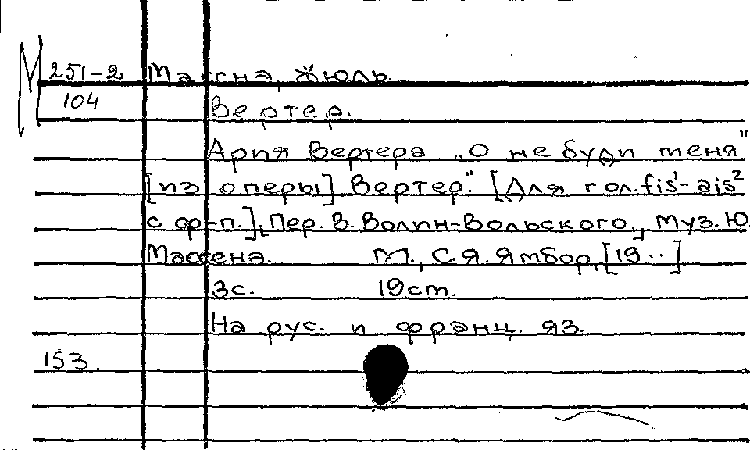 251-2 Массна, Жюль.
104 Вертер.
Ария Вертера „О не буди меня"
[из оперы] „Вертер". [Для гол. fis¹-ais²
с ф-п.], Пер. В. Волин-Вольского, Муз. Ю.
Массена. М., С.Я. Ямбор, [19··]
3с. 19cm.
На рус. и франц. яз.
153